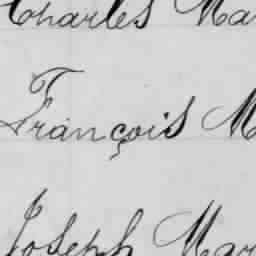 Charles Ma
François M
Joseph Mar